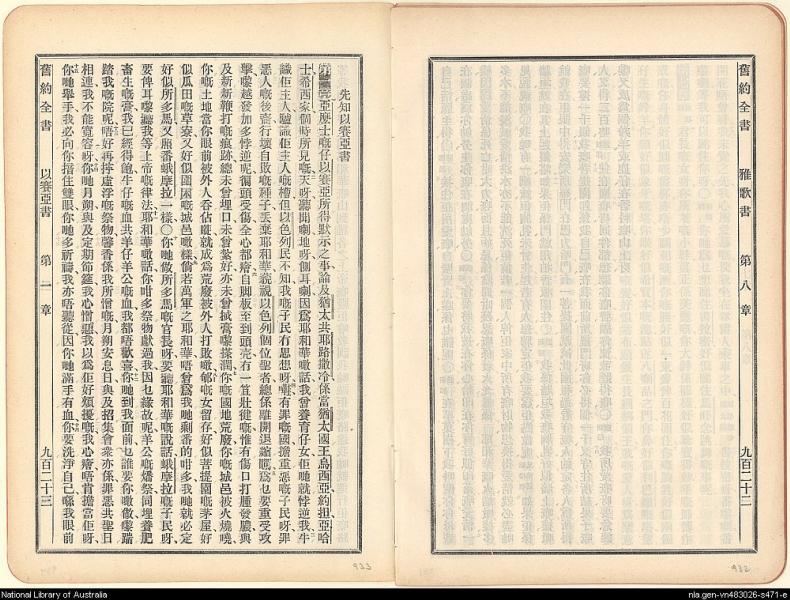 舊約全書 雅歌書 第八章 九百二十二
先知以賽亞書
亞麼士嘅仔以賽亞所得默示之事論及猶太共耶路撒冷係當猶太國王烏西亞約担亞哈
士希西家個時所見嘅天呀聽聞喇地呀側耳喇因爲耶和華噉話我曾養育仔女佢哋就悖逆我牛
識佢主人驢識佢主人嘅槽但以色列民不知我嘅子民有思想呀有罪嘅國擔重惡嘅子民呀罪
惡人嘅後裔行壞自敗嘅種子丟棄耶和華藐視以色列個位聖者總係離開退縮嚹爲乜要重受攻
擊嚟越發加多悖逆呢獨頭受傷全心都瘠自脚板至到頭壳有一笪壯健嘅惟有傷日打腫發膿與
及新新鞭打嘅痕跡總未曾埋口未曾紮好亦未曾搣膏嚟揉潤你嘅國地荒廢你嘅城邑被火燒嘵
你嘅土地當你眼前被外人吞佔就成爲荒廢被外人打敗噉郇嘅女留存好似菩提園嘅茅屋好
似瓜田嘅草寮又好似圍困嘅城邑噉樣倘若萬軍之耶和華唔曾爲我哋剩番的咁多我哋就必定
好似所多馬又照番蛾摩拉一樣〇你哋做所多馬嘅官長呀要聽耶和華嘅說話蛾摩拉嘅子民呀
要俾耳嚟聽我等上帝嘅律法耶和華噉話你咁多祭物獻過我因乜緣故呢羊公嘅燔祭同埋養肥
畜生嘅膏我已經得飽牛仔嘅血共羊仔羊公嘅血我都唔歡喜你哋到我面前乜誰要你哋噉做嚟踹
踏我嘅院呢唔好再拧虛浮嘅祭物馨香係我所憎嘅月朔安息日與及招集會衆亦係罪惡共聖日
相連我不能寬容呀你哋月朔與及定期節筵我心憎惡我以爲佢好煩擾嘅我心瘠唔肯擔當佢呀
你哋舉手我必向你揞住雙眼你哋多祈禱我亦唔聽從因你哋滿手有血你要洗淨自己喺我眼前
舊約全書 以賽亞書 第一章 九百二十三
933
932
National Library of Australia
nla.gen-vn483026-s471-e